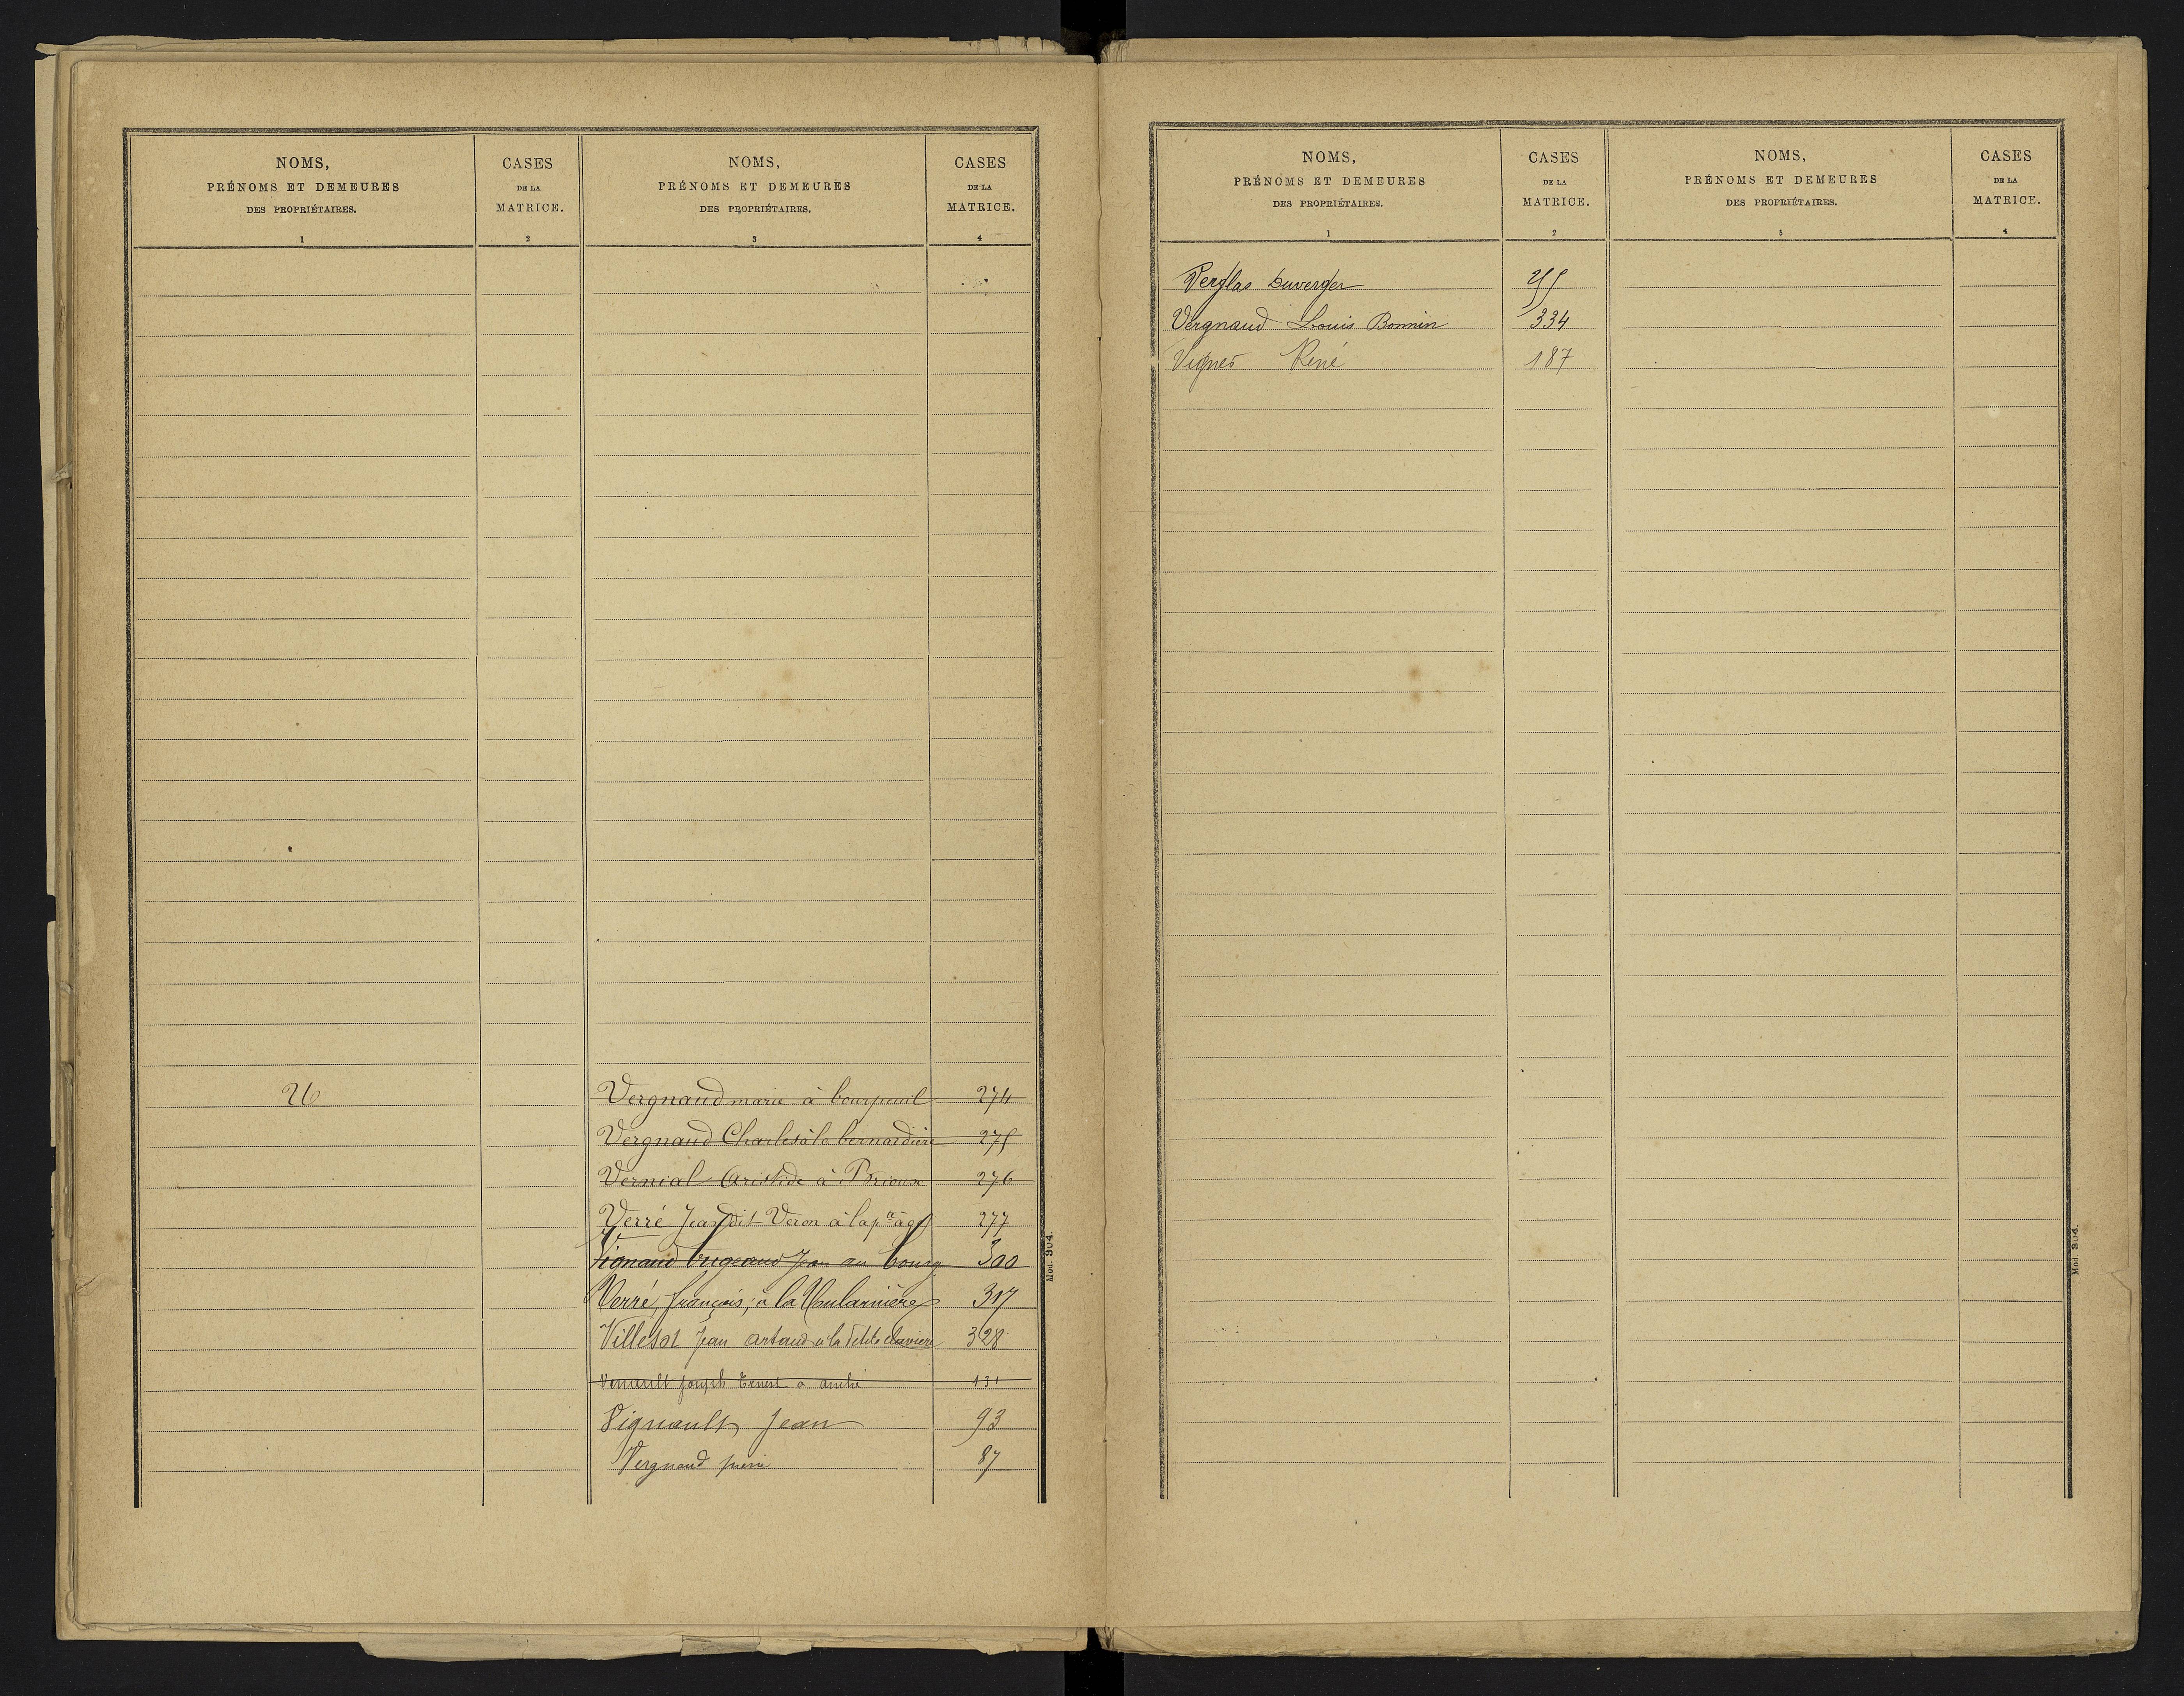 NOMS,
PRÉNOMS ET DEMEURES
DES PROPRIÉTAIRES.
1
CASES
DE LA
MATRICE.
2
NOMS,
PRÉNOMS ET DEMEURES
DES PROPRIÉTAIRES.
3
CASES
DE LA
MATRICE.
4
26
Vergnaud marie à bourpeuil 274
Vergnaud Charles à la bernardière 275
Vernial Aristide à Brioux 276
Verré Jean dit Veron à la 277
Vignaud brigeaud Jean au bourg 300
Verré, françois, à la 317
Villesot Jean artaud à la petite 328
Joseph Ernest à 131
Vignault Jean 93
Vergnaud pierre 87
Mod. 304.
NOMS,
PRÉNOMS ET DEMEURES
DES PROPRIÉTAIRES.
1
CASES
DE LA
MATRICE.
2
NOMS,
PRÉNOMS ET DEMEURES
DES PROPRIÉTAIRES.
3
CASES
DE LA
MATRICE.
4
Verglas Duverger 255
Vergnaud Louis Bonnin 334
Vignes René 187
Mod. 304.